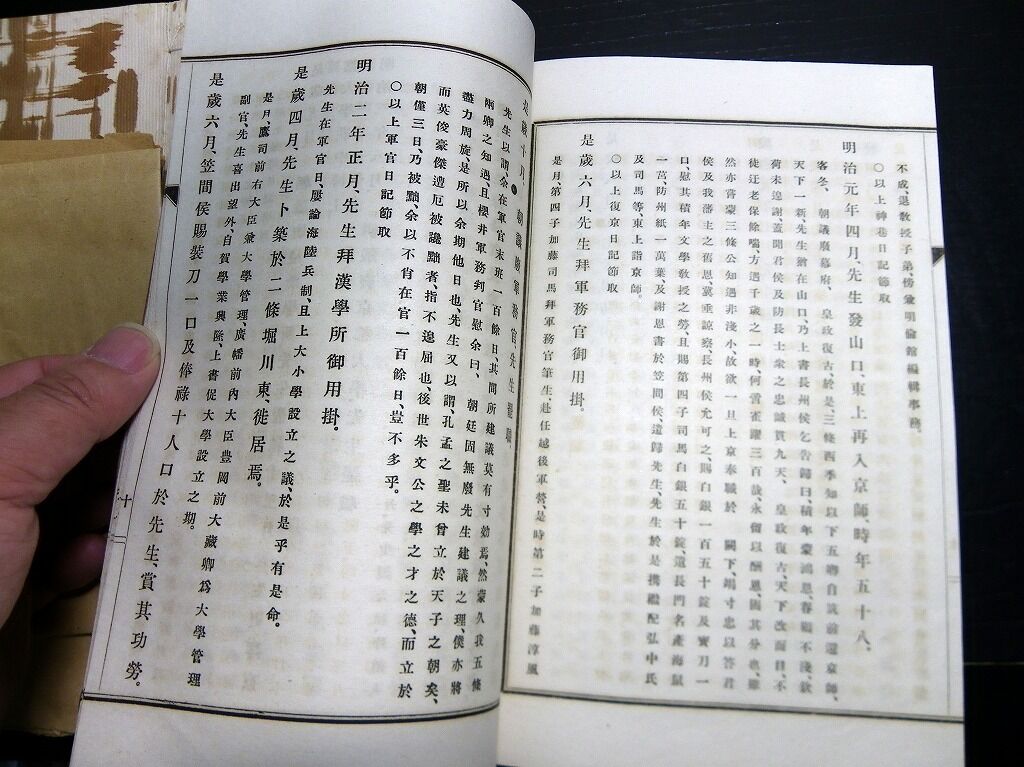 不成、退敎授子弟、傍彙明倫館編輯事務。
〇以上神巷日記節取
明治元年四月、先生發山口、東上再入京師、時年五十八。
客冬、朝議廢幕府、皇政復古、於是、三條西季知以下五卿自誠前還京師、
天下一新、先生猶在山口、乃上書長州侯乞告歸曰、積年蒙鴻恩、眷顧不淺、欽
荷未遑謝、蓋聞君侯及防長士衆之忠誠貫九天、皇政復古、天下改面目、不
徒迂老保餘喘、方遇千歲之一時、何啻雀躍三百哉、永留以酬恩、固其分也、雖
然亦嘗蒙三條公知遇非淺小、故欲一旦上京奉職於闕下、竭寸忠以答君
侯及我藩主之舊恩、冀垂諒察、長州侯允可之、賜白銀一百五十錠及寶刀一
口、慰其積年文學敎授之勞、且賜第四子司馬白銀五十錠、還長門名產海鼠
一筥防州紙一萬葉及謝恩書於笠間侯、遣歸先生、先生於是携繼配弘中氏
及司馬等、東上詣京師。
〇以上復京日記節取
是歲六月、先生拜軍務官御用掛。
是月第四子加藤司馬拜軍務官筆生、赴任越後軍營、是時第二子加藤淳風
是歲十月、朝議廢軍務官、先生罷職。
先生以謂、余在軍官末班一百餘日、其間所建議莫有寸効焉、然蒙久我五條
兩卿之知遇、且櫻井軍務判官慰余曰、朝廷固無廢先生建議之理、僕亦將
盡力周旋、是所以余期他日也、先生又以謂、孔孟之聖未曾立於天子之朝矣、
而英俊豪傑遭厄被讒黜者、指不遑屈也、後世朱文公之學之才之德、而立於
朝僅三日、乃被黜、余以不肖在官一百餘日、豈不多乎。
〇以上軍官日記節取
明治二年正月、先生拜漢學所御用掛。
先生在軍官日、屢論海陸兵制、且上大小學設立之議、於是乎有是命。
是歲四月、先生卜築於二條堀川東、徙居焉。
是月、鷹司前右大臣兼大學管理、廣幡前內大臣豐岡前大藏卿爲大學管理
副官、先生喜出望外、自賀學業興隆、上書促大學設立之期。
是歲六月、笠間侯賜裝刀一口及俸祿十人口於先生、賞其功勞。
十